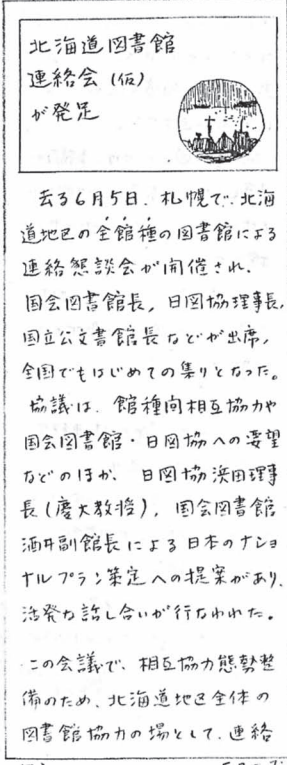 北海道図書館
連絡会(仮)
が発足
去る6月5日、札幌で、北海
道地区の全館種の図書館による
連絡懇談会が開催され、
国会図書館長,日図協理事長,
国立公文書館長などが出席,
全国でもはじめての集りとなった。
協議は、館種間相互協力や
国会図書館・日図協への要望
などのほか、日図協浜田理事
長(慶大教授),国会図書館
酒井副館長による日本のナショ
ナルプラン策定への提案があり、
活発な話し合いが行なわれた。
この会議で、相互協力態勢整
備のため、北海道地区全体の
図書館協力の場として、連絡